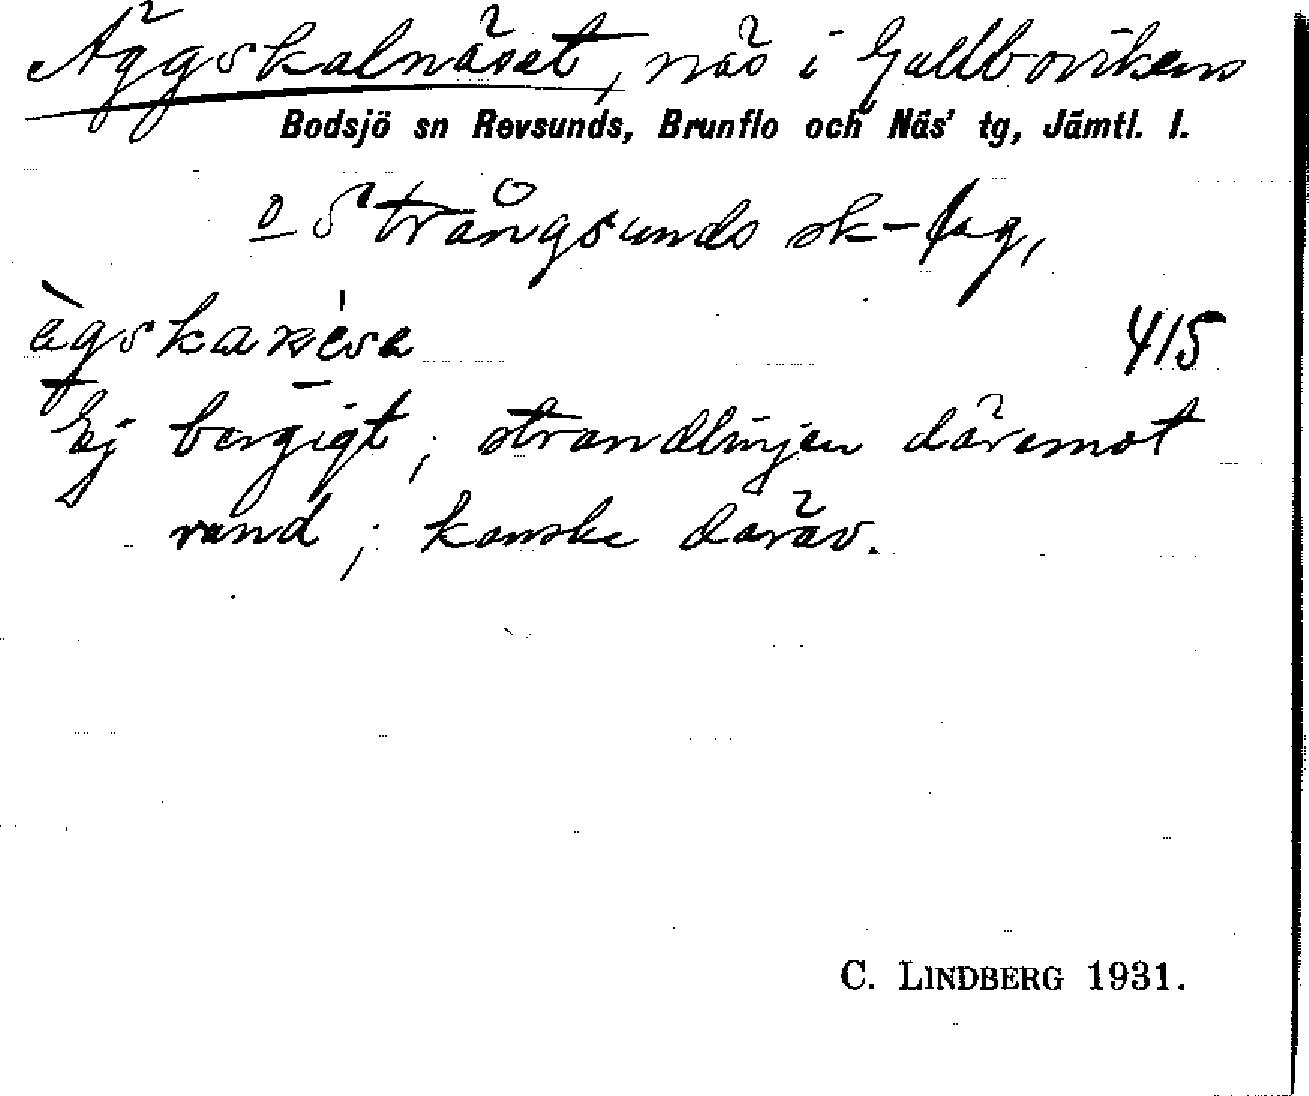 Äggskalnäset, näs i Gullbovikens
Bodsjö sn Revsunds, Brunflo och Näs' tg, Jämtl. l.
o Strångsunds sk-lag,
415
Ej bergigt; strandlinjen däremot
rund; kanske därav.
C. LINDBERG 1931.